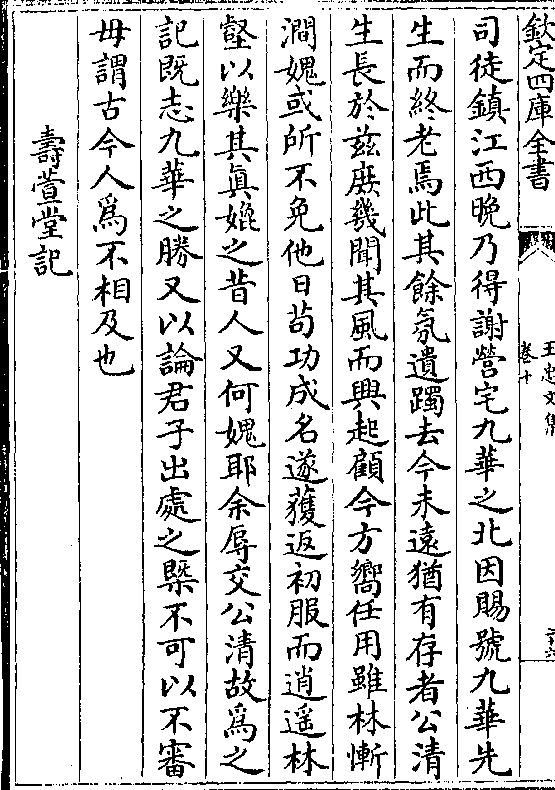 欽定四庫全書
王忠文集
卷十
二十六
司徒鎮江西晚乃得謝營宅九華之北因賜號九華先
生而終老焉此其餘氛遺躅去今未遠猶有存者公清
生長於兹庶幾聞其風而興起顧今方嚮任用雖林慚
澗媿或所不免他日苟功成名遂獲返初服而逍遥林
壑以樂其眞媲之昔人又何媿耶余辱交公清故爲之
記既志九華之勝又以論君子出處之槩不可以不審
毋謂古今人爲不相及也
壽萱堂記